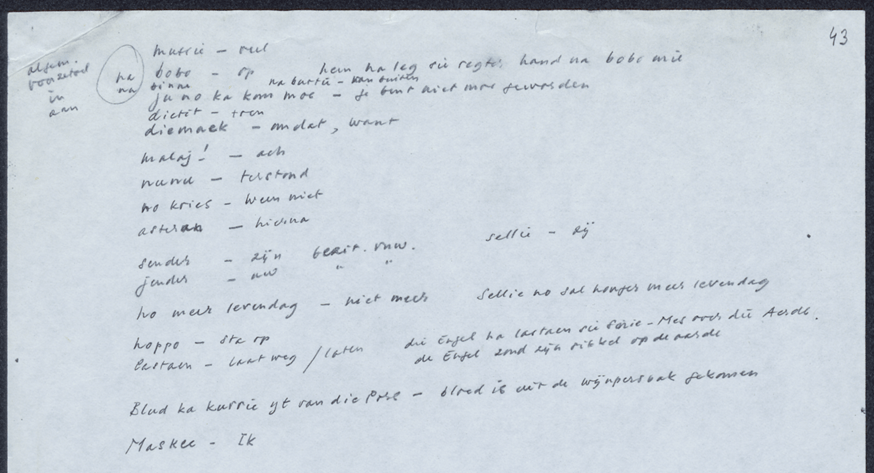 43
mussie – veel
algem. voorzetsel in aan
na na
bobo – op   hem ha leg sie regter hand na bobo mie
binne   na buitü – van buiten
ju no ka kom moe – je bent niet moe geworden
dietit – toen
diemaek – omdat, want
malaj! – ach
nunu – terstond
no kries – ween niet
asteran – hierna
sender – zijn bezit. vnw.   sellie – zij
jender – uw " "
no meer levendag – niet meer   Sellie no sal honger meer levendag
hoppo – sta op
Lastaen – laat weg / laten   die Engel ha lastaen sie Serie-Mes over die Aerde.
de Engel zond zijn sikkel op de aarde
Blud ka kurrie yt van die Perse – bloed is uit de wijnpersbak gekomen
Maskee – Ik